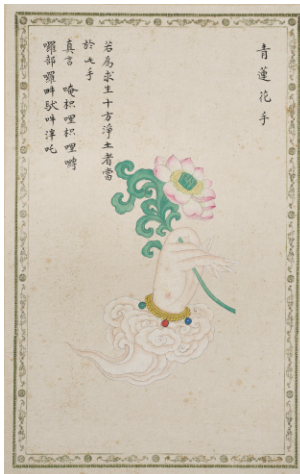 青蓮花手
若為求生十方淨土者當
於此手
真言 唵枳哩枳哩嚩
囉部囉畔馱吽泮吒